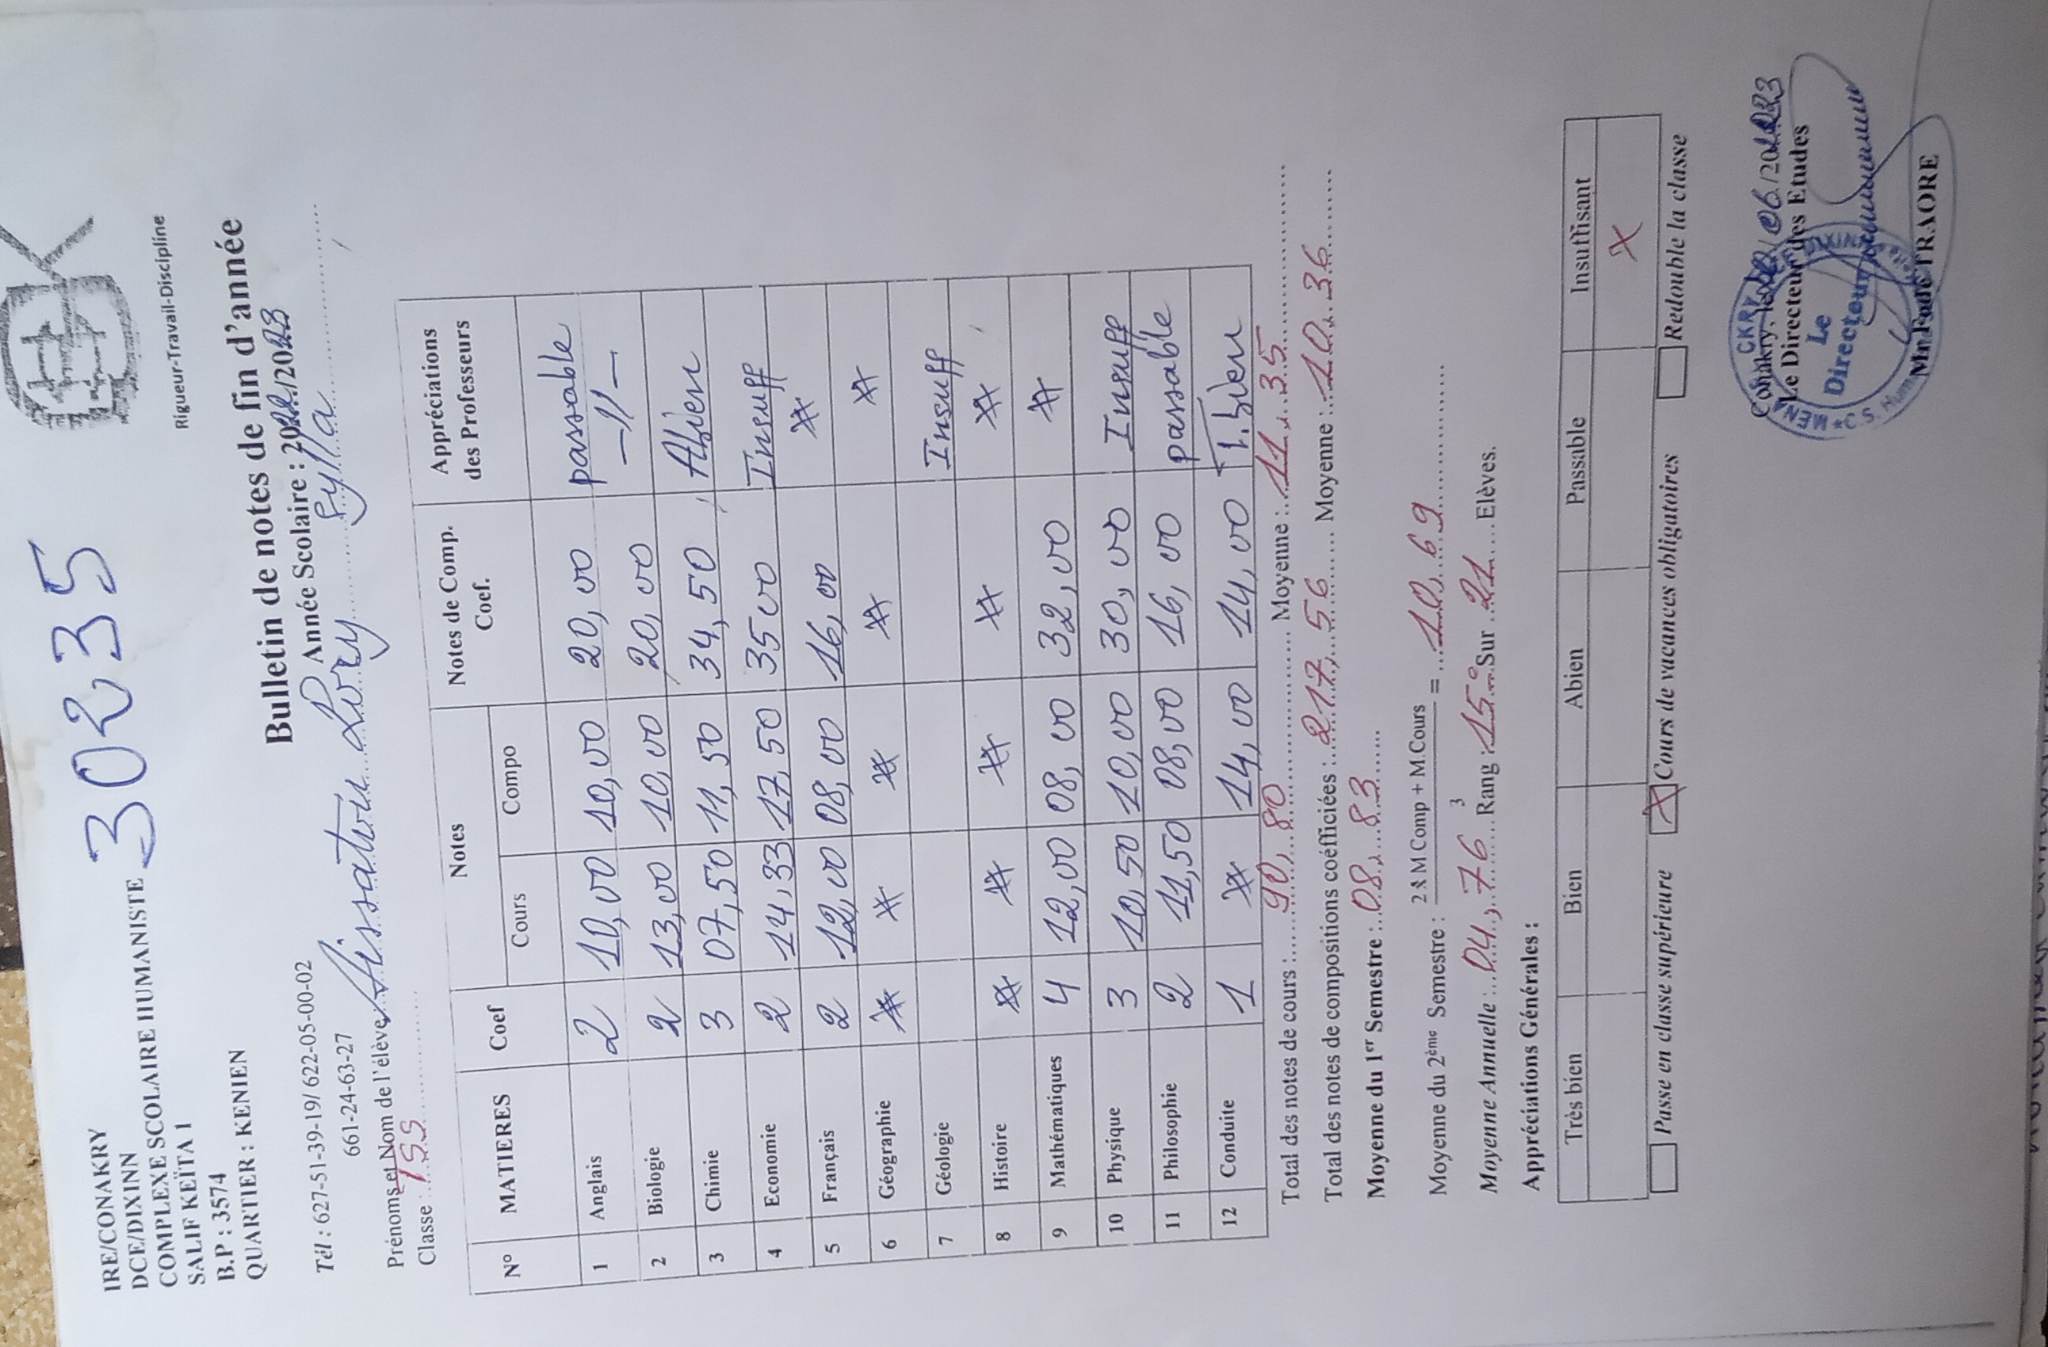 IRE/CONAKRY
DCE/DIXINN
COMPLEXE SCOLAIRE HUMANISTE
SALIF KEÏTA I
B.P : 3574
QUARTIER : KENIEN
30235
Rigueur-Travail-Discipline
Bulletin de notes de fin d'année
Tél : 627-51-39-19/ 622-05-00-02
661-24-63-27
Année Scolaire : 2022/2023
Prénoms et Nom de l'élève Aissatou Lory Sylla
Classe : TSS
N° MATIERES Coef Notes Notes de Comp. Coef. Appréciations des Professeurs
Cours Compo
1 Anglais 2 10,00 10,00 20,00 passable
2 Biologie 2 13,00 10,00 20,00 -//-
3 Chimie 3 07,50 11,50 34,50 Abien
4 Economie 2 14,33 17,50 3500 Insuff
5 Français 2 12,00 08,00 16,00 **
6 Géographie ** ** ** ** **
7 Géologie Insuff
8 Histoire ** ** ** ** **
9 Mathématiques 4 12,00 08,00 32,00 **
10 Physique 3 10,50 10,00 30,00 Insuff
11 Philosophie 2 11,50 08,00 16,00 passable
12 Conduite 1 ** 14,00 14,00 T.bien
Total des notes de cours : 90,80 Moyenne : 11,35
Total des notes de compositions coéfficiées : 217,56 Moyenne : 10,36
Moyenne du 1er Semestre : 08,83
Moyenne du 2ème Semestre : 2 x M Comp + M.Cours = 10,69
3
Moyenne Annuelle : 04,76 Rang : 15° Sur 21 Elèves.
Appréciations Générales :
Très bien Bien Abien Passable Insuffisant
X
Passe en classe supérieure X Cours de vacances obligatoires Redouble la classe
Conakry, 06/2023
Le Directeur des Etudes
Le
Directeur
TRAORE